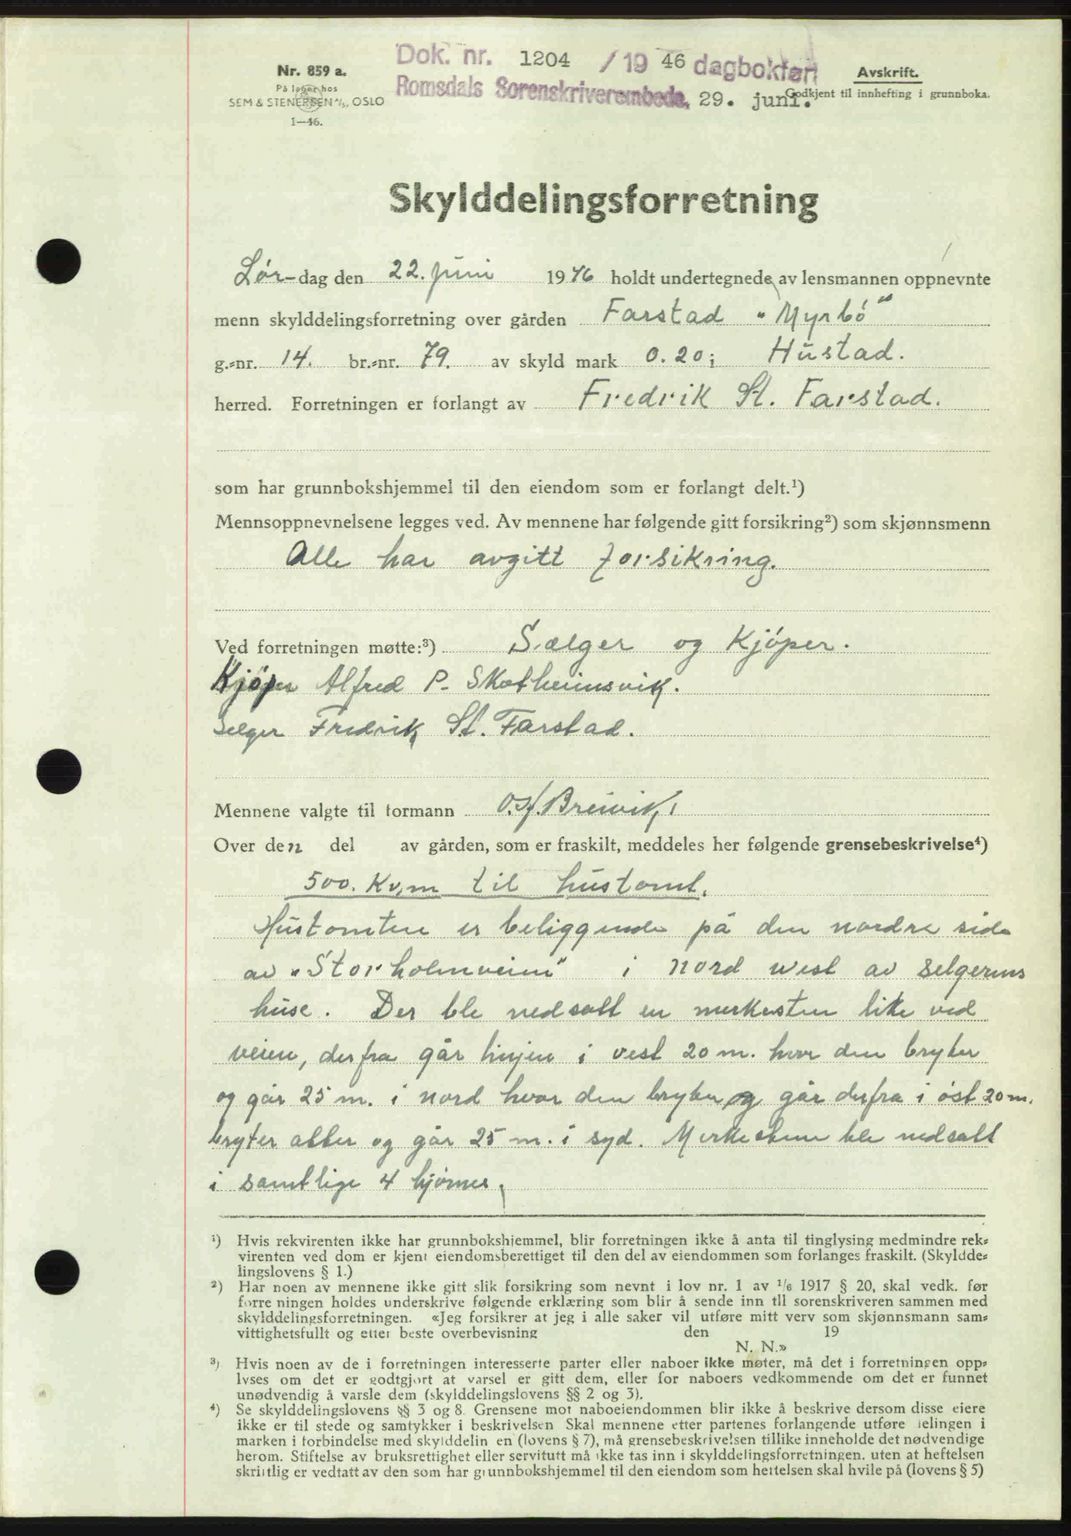 Nr. 859 a.
På lager hos
SEM & STENERSEN A/S, OSLO
1—46.
Dok. nr. 1204 /19 46 dagbokført
Romsdals Sorenskriverembede, 29. juni.
Avskrift.
Godkjent til innhefting i grunnboka.
Skylddelingsforretning
Lør-dag den 22. juni 1946 holdt undertegnede, av lensmannen oppnevnte
menn skylddelingsforretning over gården Farstad "Myrbö"
g.-nr. 14. br.-nr. 79. av skyld mark 0.20 i Hustad.
herred. Forretningen er forlangt av Fredrik St. Farstad.
som har grunnbokshjemmel til den eiendom som er forlangt delt.¹)
Mennsoppnevnelsene legges ved. Av mennene har følgende gitt forsikring²) som skjønnsmenn
Alle har avgitt forsikring.
Ved forretningen møtte:³) Sælger og Kjöper.
Kjöper Alfred P. Skotheimsvik.
Selger Fredrik St. Farstad.
Mennene valgte til formann O. H. Breivik,
Over den del av gården, som er fraskilt, meddeles her følgende grensebeskrivelse⁴)
500. Kv.m til hustomt.
Hustomten er beliggende på den nordre side
av "Storholmveien" i nord west av selgerens
huse. Der ble nedsatt en merkesten like ved
veien, derfra går linjen i vest 20 m. hvor den bryter
og går 25 m. i nord hvor den bryter og går derfra i öst 20 m.
bryter atter og går 25 m. i syd. Merkestene ble nedsatt
i samtlige 4 hjörner.
¹) Hvis rekvirenten ikke har grunnbokshjemmel, blir forretningen ikke å anta til tinglysing medmindre rek-
virenten ved dom er kjent eiendomsberettiget til den del av eiendommen som forlanges fraskilt. (Skyldde-
lingslovens § 1.)
²) Har noen av mennene ikke gitt slik forsikring som nevnt i lov nr. 1 av ¹/₆ 1917 § 20, skal vedk. før
forretningen holdes underskrive følgende erklæring som blir å sende inn til sorenskriveren sammen med
skylddelingsforretningen. «Jeg forsikrer at jeg i alle saker vil utføre mitt verv som skjønnsmann sam-
vittighetsfullt og etter beste overbevisning den 19
N. N.»
³) Hvis noen av de i forretningen interesserte parter eller naboer ikke møter, må det i forretningen opp-
lyses om det er godtgjort at varsel er gitt dem, eller for naboers vedkommende om det er funnet
unødvendig å varsle dem (skylddelingslovens §§ 2 og 3).
⁴) Se skylddelingslovens §§ 3 og 8. Grensene mot naboeiendommen blir ikke å beskrive dersom disse eiere
ikke er til stede og samtykker i beskrivelsen Skal mennene etter partenes forlangende utføre delingen i
marken i forbindelse med skylddelingen (lovens § 7), må grensebeskrivelsen tillike inneholde det nødvendige
herom. Stiftelse av bruksrettighet eller servitutt må ikke tas inn i skylddelingsforretningen, uten at heftelsen
skriftlig er vedtatt av den som har grunnbokshjemmel til den eiendom som heftelsen skal hvile på (lovens § 5)